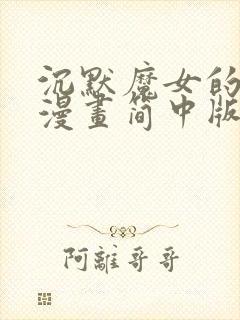 沉默魔女的
漫畫简中版
阿離哥哥